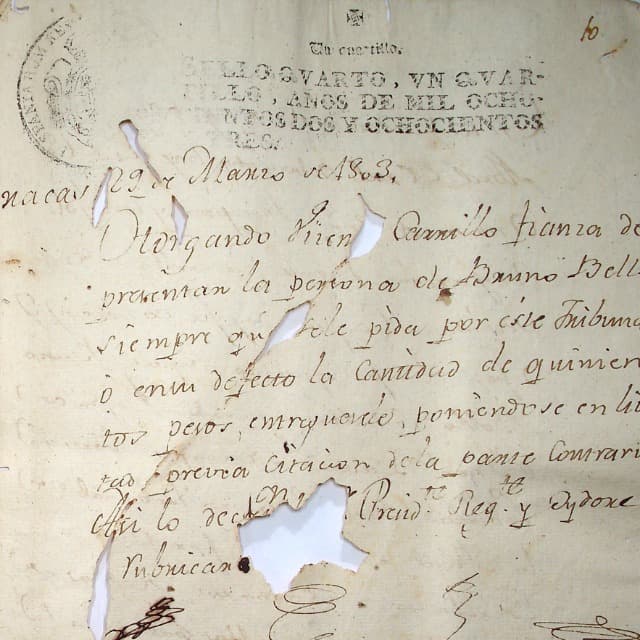 10
Un cuartillo.
SELLO QVARTO, VN QVAR-
TILLO, AÑOS DE MIL OCHO-
CIENTOS DOS Y OCHOCIENTOS
TRES.
racas 29 de Marzo de 1803.
Otorgando Vicen Carrillo fianza de
presentar la persona de Bruno Bell
siempre qu ele pida por este Tribuna
ó en su defecto la Cantidad de quinien
tos pesos, entreguesele, poniendose en li
tad previa citacion de la parte Contrari
Asi lo dec Presid.te Reg.te y
rubrican